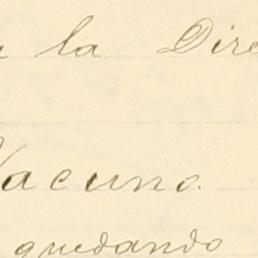 la Dire
Vacuno.
quedando